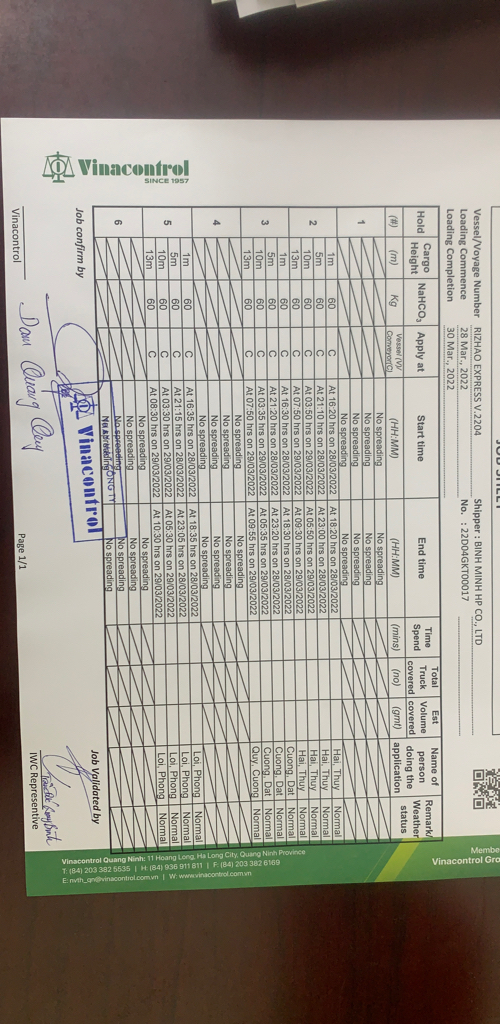 JOB SHEET
Member
Vinacontrol Gro
Vessel/Voyage Number RIZHAO EXPRESS V.2204 Shipper : BINH MINH HP CO., LTD
Loading Commence 28 Mar., 2022 No. : 22D04GKT00017
Loading Completion 30 Mar., 2022
Hold Cargo Height NaHCO3 Apply at Start time End time Time Spend Total Truck covered Est Volume covered Name of person doing the application Remark Weather status
(#) (m) Kg Vessel (V)/ Conveyor(C) (HH:MM) (HH:MM) (mins) (no) (gmt)
1 No spreading No spreading
No spreading No spreading
No spreading No spreading
No spreading No spreading
2 1m 60 C At 16:20 hrs on 28/03/2022 At 18:20 hrs on 28/03/2022 Hai, Thuy Normal
5m 60 C At 21:10 hrs on 28/03/2022 At 23:00 hrs on 28/03/2022 Hai, Thuy Normal
10m 60 C At 03:50 hrs on 29/03/2022 At 05:35 hrs on 29/03/2022 Hai, Thuy Normal
13m 60 C At 07:50 hrs on 29/03/2022 At 09:30 hrs on 29/03/2022 Hai, Thuy Normal
3 1m 60 C At 16:30 hrs on 28/03/2022 At 18:30 hrs on 28/03/2022 Cuong, Dat Normal
5m 60 C At 21:20 hrs on 28/03/2022 At 23:20 hrs on 28/03/2022 Cuong, Dat Normal
10m 60 C At 03:35 hrs on 29/03/2022 At 05:35 hrs on 29/03/2022 Cuong, Dat Normal
13m 60 C At 07:50 hrs on 29/03/2022 At 09:55 hrs on 29/03/2022 Quy, Cuong Normal
4 No spreading No spreading
No spreading No spreading
No spreading No spreading
No spreading No spreading
5 1m 60 C At 16:35 hrs on 28/03/2022 At 18:35 hrs on 28/03/2022 Loi, Phong Normal
5m 60 C At 21:15 hrs on 28/03/2022 At 23:55 hrs on 28/03/2022 Loi, Phong Normal
10m 60 C At 03:30 hrs on 29/03/2022 At 05:30 hrs on 29/03/2022 Loi, Phong Normal
13m 60 C At 08:30 hrs on 29/03/2022 At 10:30 hrs on 29/03/2022 Loi, Phong Normal
6 No spreading No spreading
No spreading No spreading
No spreading No spreading
No spreading No spreading
Vinacontrol
Job confirm by Job Validated by
Vinacontrol IWC Representive
Vinacontrol
SINCE 1957
Page 1/1
Vinacontrol Quang Ninh: 11 Hoang Long, Ha Long City, Quang Ninh Province
T: (84) 203 382 5535 | H: (84) 936 911 811 | F: (84) 203 382 6169
E: nvth_qn@vinacontrol.com.vn | W: www.vinacontrol.com.vn